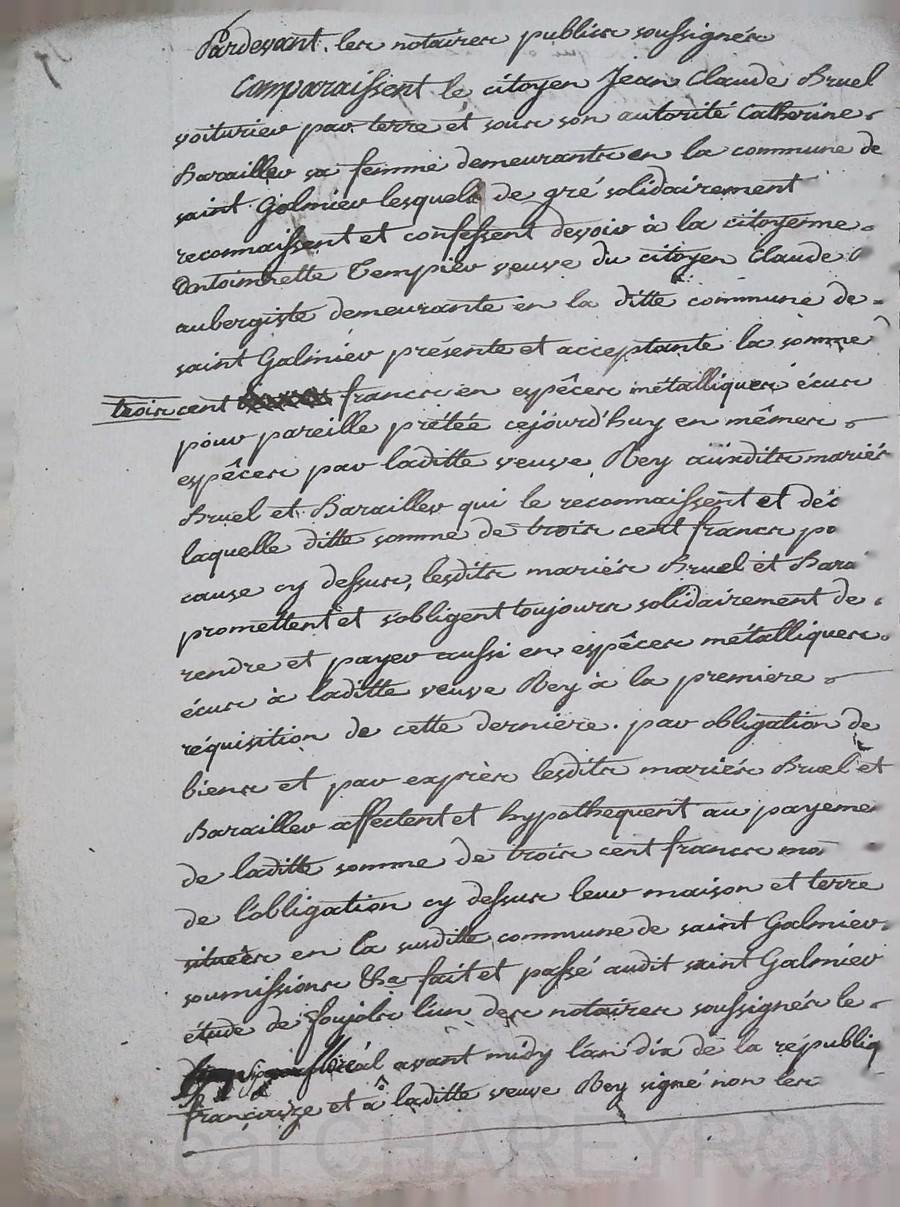 Pardevant les notaires publics soussignés
Comparaissent le citoyen Jean Claude Bruel
voiturier par terre et sous son autorité Catherine
Barailler sa femme demeurants en la commune de
saint Galmier lesquels de gré solidairement
reconnaissent et confessent devoir à la citoyenne
Antoinnette Tempier veuve du citoyen Claude
aubergiste demeurante en la ditte commune de
saint Galmier présente et acceptante la somme
trois cent francs en espêces métalliques écus
pour pareille prétée cejourd'huy en mêmes
espêces par laditte veuve Rey auxdits mariés
Bruel et Barailler qui le reconnaissent et déc
laquelle ditte somme de trois cent francs po
cause cy dessus, lesdits mariés Bruel et Bara
promettent et s'obligent toujours solidairement de
rendre et payer aussi en espêces métalliques
écus à laditte veuve Rey à la premiere
réquisition de cette derniere. par obligation de
biens et par exprès lesdits mariés Bruel et
Barailler affectent et hypothequent au payeme
de laditte somme de trois cent francs mo
de l'obligation cy dessus leur maison et terre
situées en la susditte commune de saint Galmier
soumissions &ca fait et passé audit saint Galmier
étude de l'un des notaires soussignés le
floréal avant midy l'an dix de la républiq
françaize et à laditte veuve Rey signé non les
Pascal CHAREYRON